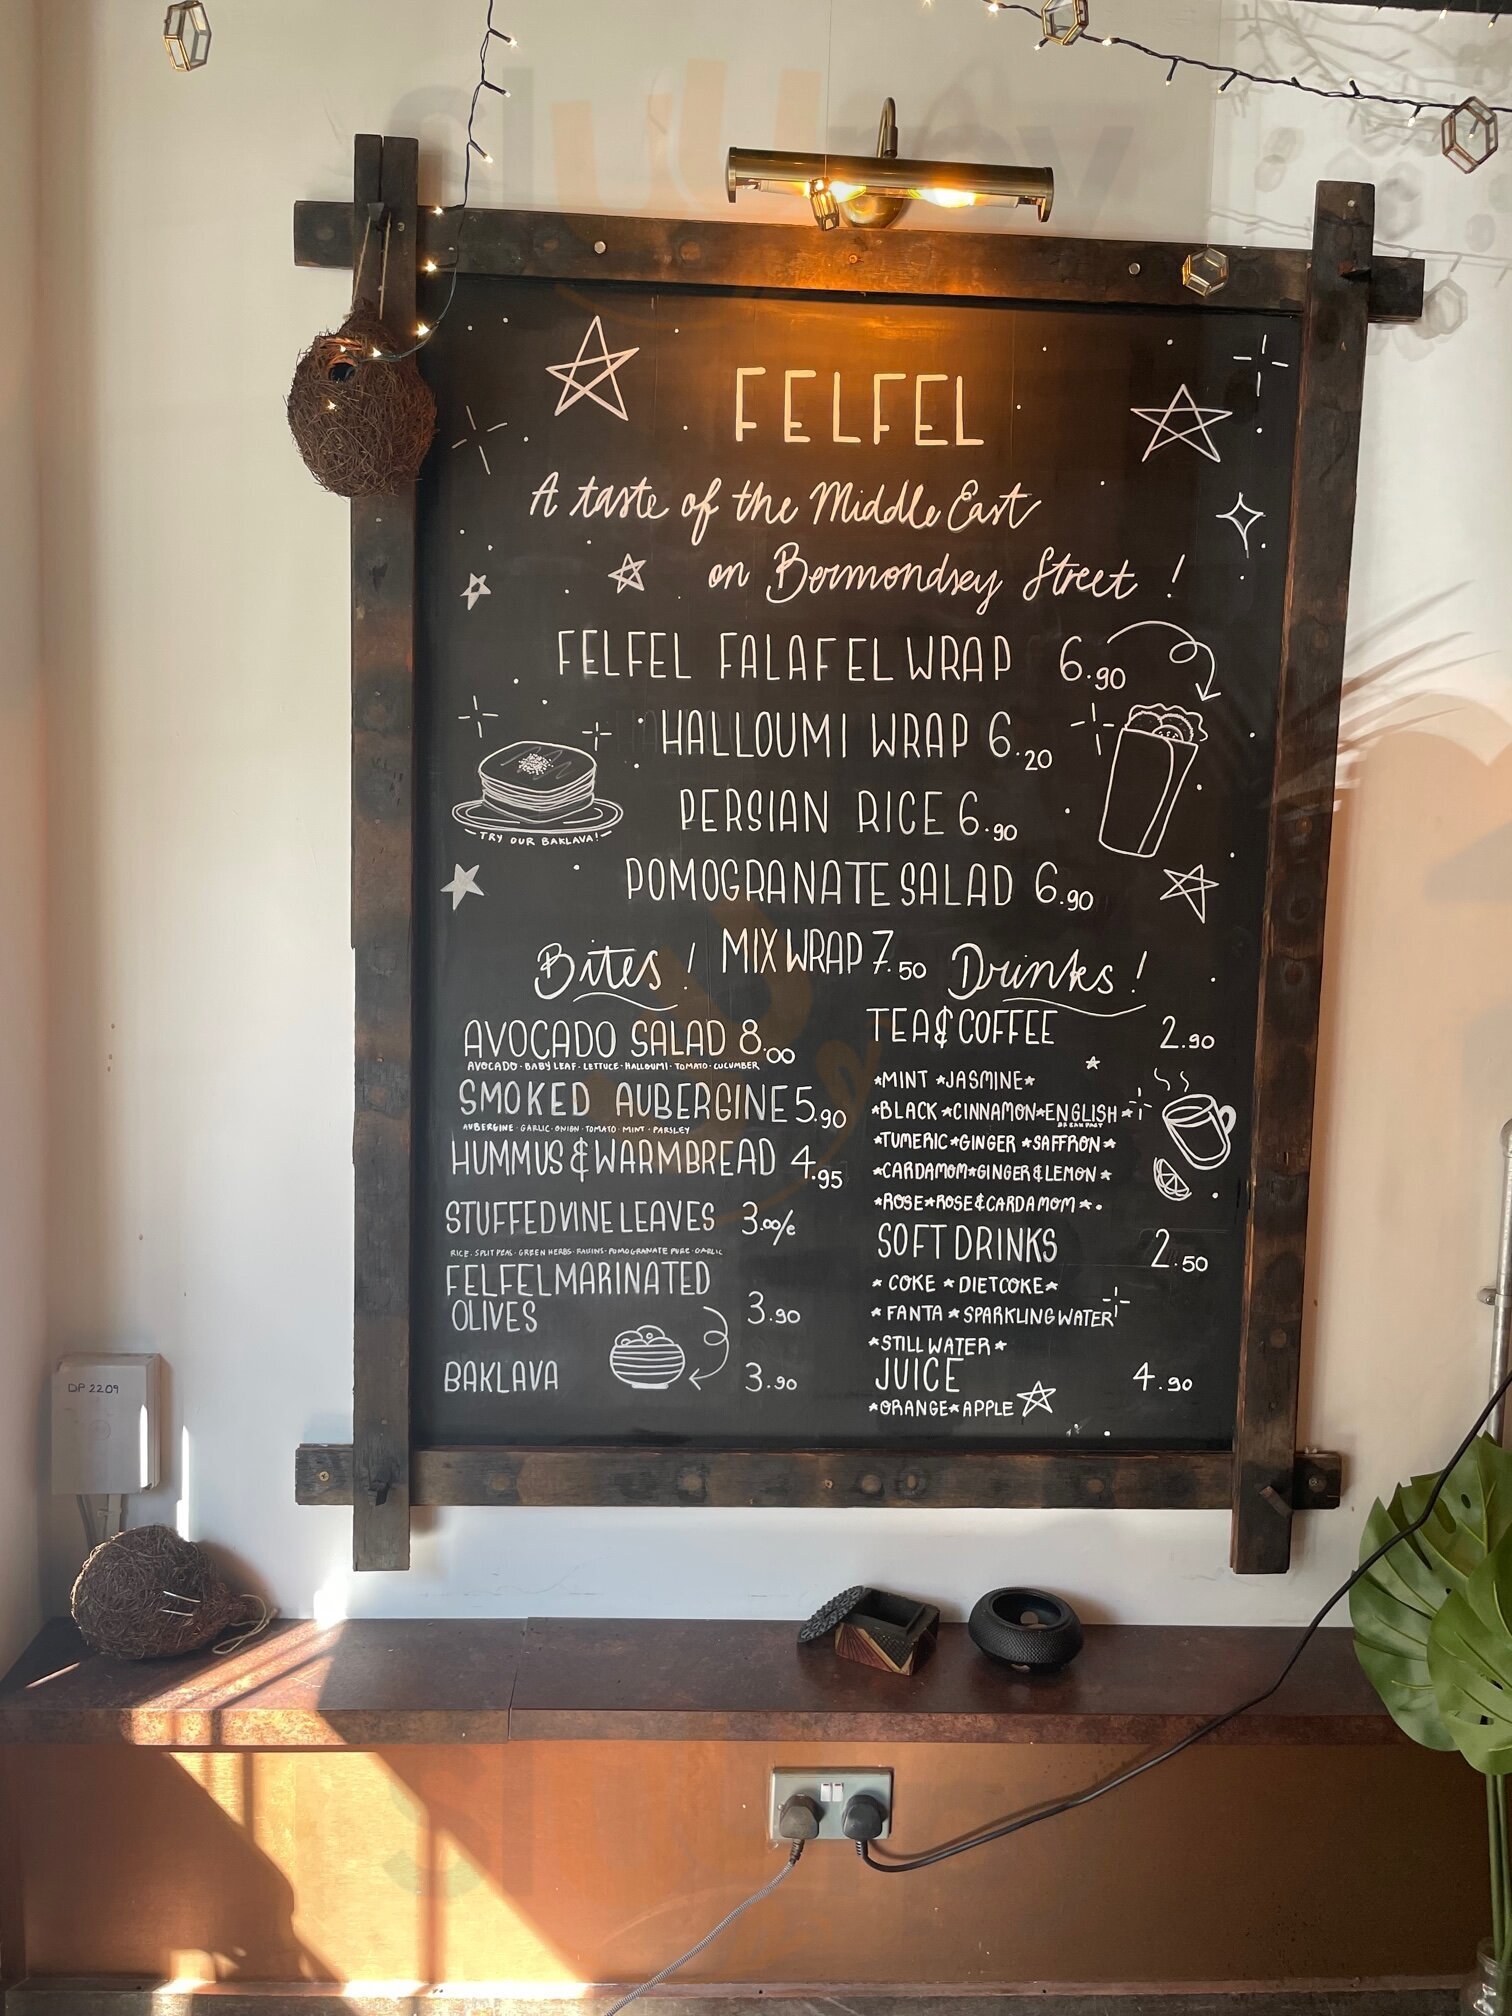 FELFEL
A taste of the Middle East
on Bermondsey Street !
FELFEL FALAFEL WRAP 6.90
HALLOUMI WRAP 6.20
PERSIAN RICE 6.90
TRY OUR BAKLAVA!
POMOGRANATE SALAD 6.90
MIX WRAP 7.50
Bites !
AVOCADO SALAD 8.00
AVOCADO · BABY LEAF · LETTUCE · HALLOUMI · TOMATO · CUCUMBER
SMOKED AUBERGINE 5.90
AUBERGINE · GARLIC · ONION · TOMATO · MINT · PARSLEY
HUMMUS & WARMBREAD 4.95
STUFFED VINE LEAVES 3.00/e
RICE · SPLIT PEAS · GREEN HERBS · RAISINS · POMOGRANATE PURE · GARLIC
FELFEL MARINATED
OLIVES 3.90
BAKLAVA 3.90
Drinks !
TEA & COFFEE 2.90
*MINT *JASMINE*
*BLACK *CINNAMON*ENGLISH *
BREAKFAST
*TUMERIC*GINGER *SAFFRON*
*CARDAMOM*GINGER & LEMON *
*ROSE*ROSE & CARDAMOM *
SOFT DRINKS 2.50
* COKE * DIETCOKE*
* FANTA * SPARKLING WATER
*STILL WATER *
JUICE 4.90
*ORANGE* APPLE
DP 2209